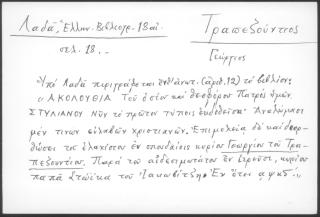 Λαδᾶ, Ἑλλην. Βιβλιογρ. 18 αἰ.
Τραπεζούντιος
σελ. 18.-
Γεώργιος
Ὑπὸ Λαδᾶ περιγράφεται (ἀριθ. 12) τὸ βιβλίον:
ΑΚΟΛΟΥΘΙΑ Τοῦ ὁσίου καὶ θεοφόρου Πατρὸς ἡμῶν
ΣΤΥΛΙΑΝΟΥ Νῦν τὸ πρῶτον τύποις ἐκδοθεῖσα· Ἀναλώμασι
μέν τινων εὐλαβῶν χριστιανῶν. Ἐπιμελείᾳ δὲ καὶ διορ-
θώσει τοῦ ἐλαχίστου ἐν σπουδαίοις κυρίου Γεωργίου τοῦ Τρα-
πεζουντίου. Παρὰ τῷ αἰδεσιμωτάτῳ ἐν ἱερεῦσι, κυρίῳ
παπᾶ Στώϊκα τοῦ Ἔτει αψκδ΄